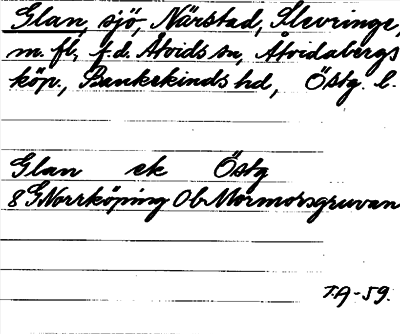 Glan, sjö, Närstad, Slevringe,
m. fl., f.d. Åtvids sn, Åtvidabergs
köp., Bankekinds hd, Östg. l.
Glan ek Östg
8 G Norrköping Ob Mormorsgruvan
T.A-59.